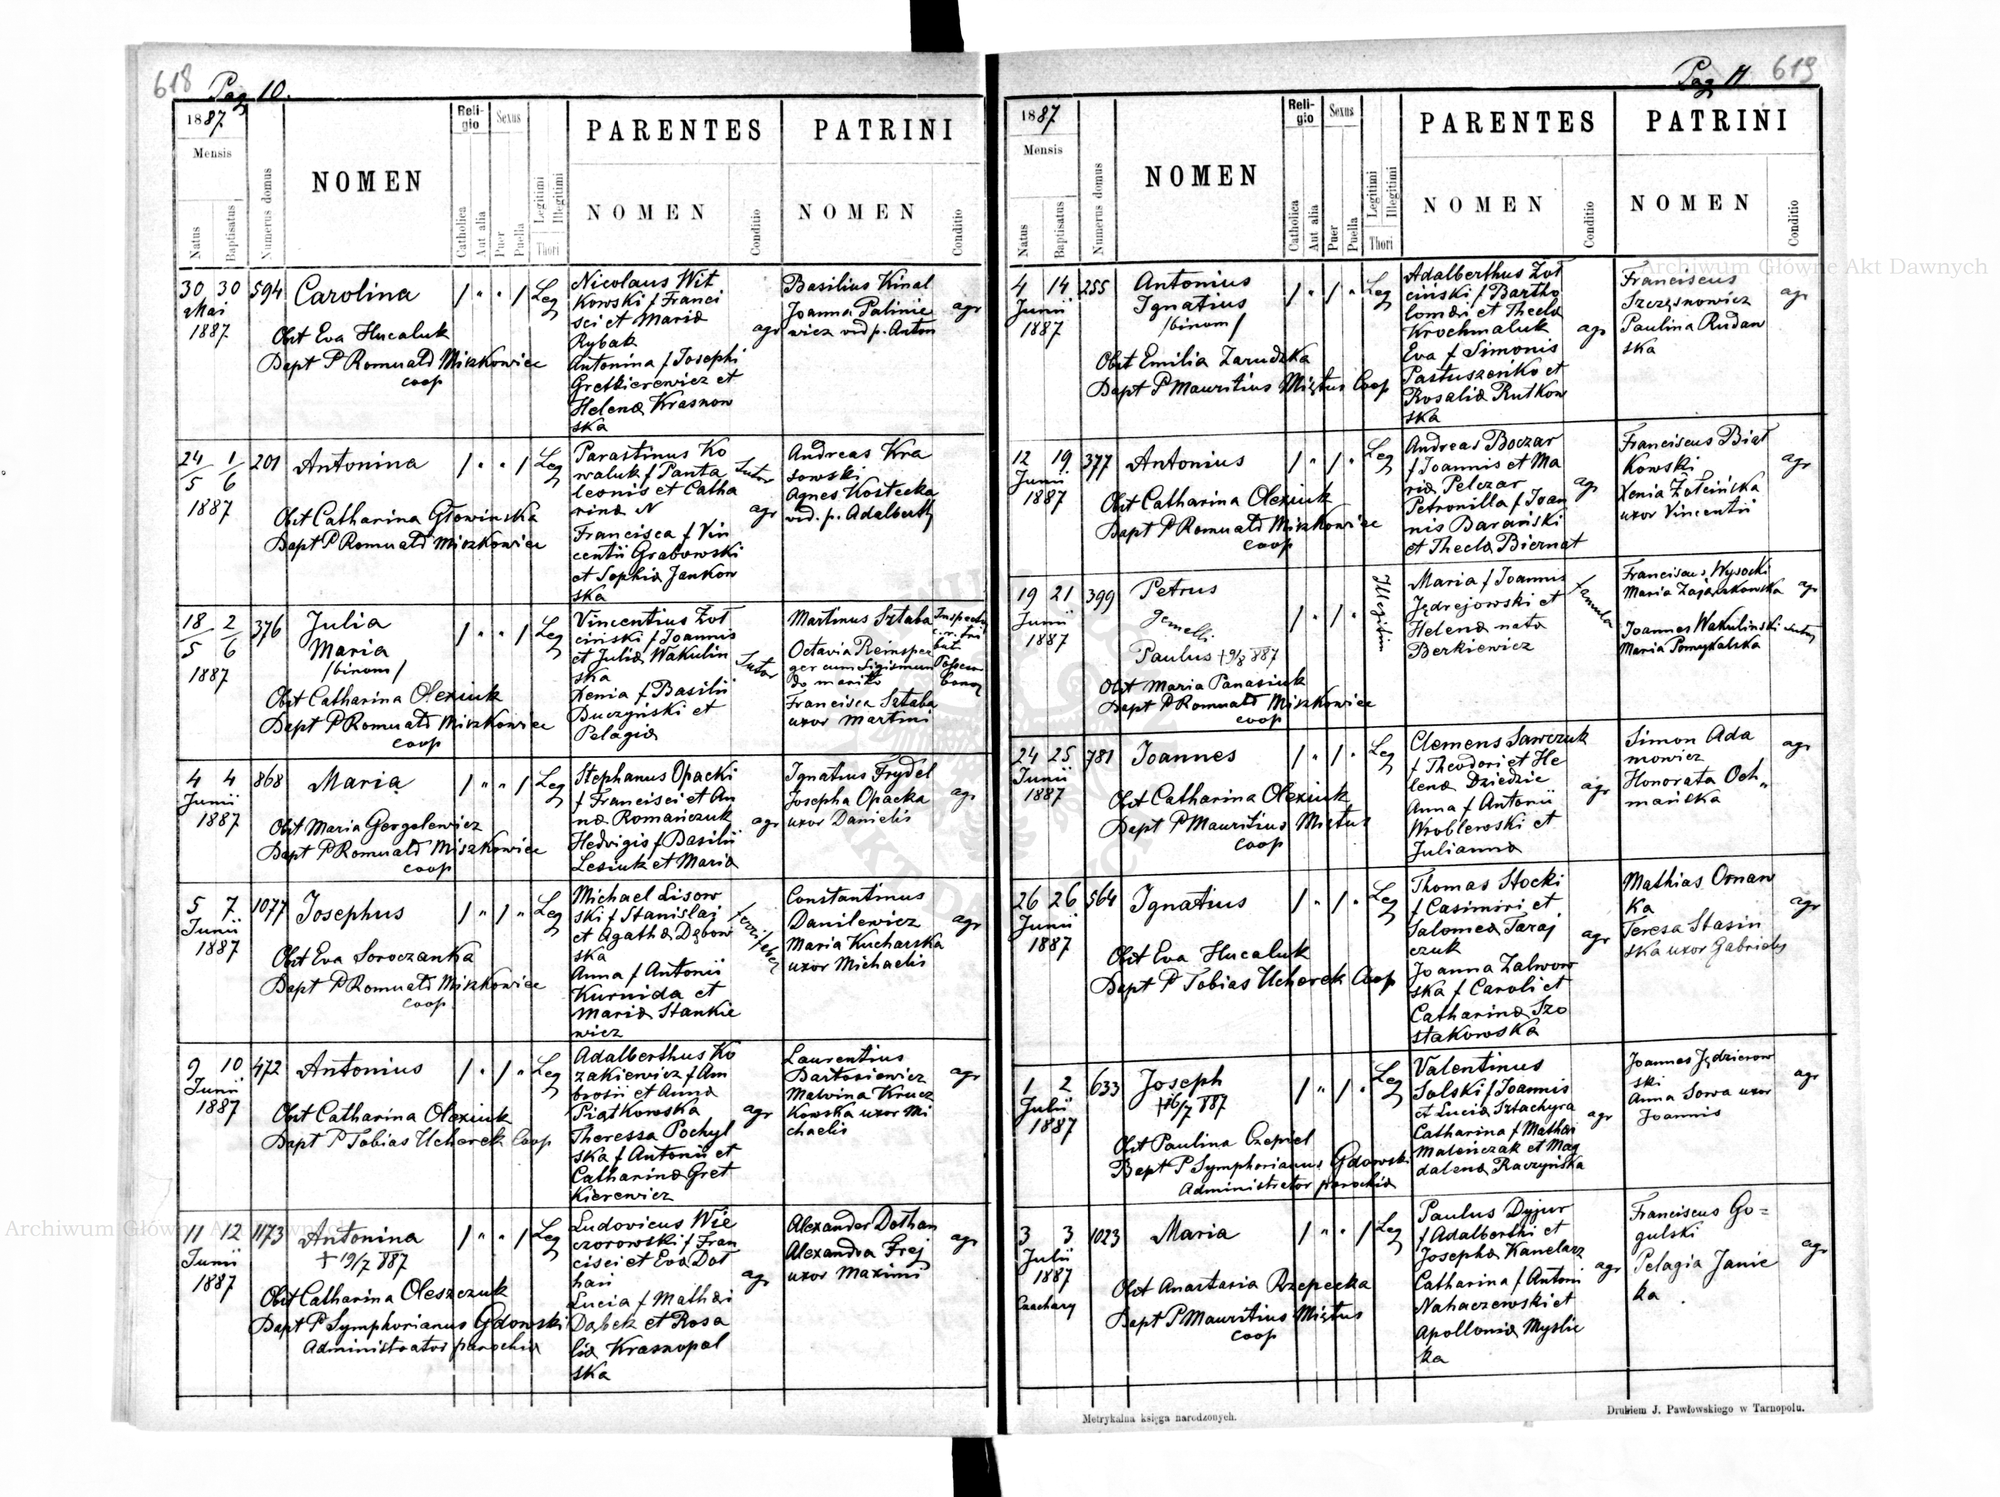 618
Pag 10.
1887
Mensis
Natus
Baptisatus
Numerus domus
NOMEN
Religio
Catholica
Aut alia
Sexus
Puer
Puella
Legitimi
Illegitimi
Thori
PARENTES
NOMEN
Conditio
PATRINI
NOMEN
Conditio
30 30 594
Maj
1887
Carolina
Obst Eva Hucaluk
Bapt P Romuald Miszkowiec
coop
Leg
Nicolaus Wit
kowski f Franci
sci et Maria
Rybak
Antonina f Josephi
Gretkierewicz et
Helena Krasnow
ska
agr
Basilius Kinal
Joanna Palinie
wicz vid p. Anton
agr
24/5 1/6 201
1887
Antonina
Obst Catharina Głowinska
Bapt P Romuald Miszkowiec
Leg
Parastinus Ko
waluk f Panta
leonis et Catha
rina N
Francisca f Vin
centii Grabowski
et Sophia Jankow
ska
Sutor
agr
Andreas Kra
sowski
Agnes Kostecka
vid. p. Adalberti
18/5 2/6 376
1887
Julia
Maria
/binom/
Obst Catharina Olexiuk
Bapt P Romuald Miszkowiec
coop
Leg
Vincentius Żoł
ciński f Joannis
et Julia Wakulin
ska
Xenia f Basilii
Buczyński et
Pelagia
Sutor
Martinus Sztaba
Octavia Reinsper
ger cum Sigismun
do marito
Francisca Sztaba
uxor Martini
4 4 868
Junii
1887
Maria
Obst Maria Gergelewicz
Bapt P Romuald Miszkowiec
coop
Leg
Stephanus Opacki
f Francisci et An
na Romańczuk
Hedvigis f Basilii
Lesiuk et Maria
agr
Ignatius Frydel
Josepha Opacka
uxor Danielis
agr
5 7 1077
Junii
1887
Josephus
Obst Eva Soroczanka
Bapt P Romuald Miszkowiec
coop
Leg
Michael Lisow
ski f Stanislai
et Agatha Dębow
ska
Anna f Antonii
Kurnida et
Maria Stankie
wicz
Constantinus
Danilewicz
Maria Kucharska
uxor Michaelis
agr
9 10 472
Junii
1887
Antonius
Obst Catharina Olexiuk
Bapt P Tobias Ucherek Coop
Leg
Adalberthus Ko
zakiewicz f Am
brosii et Anna
Piątkowska
Theressa Pochyl
ska f Antonii et
Catharina Gret
kierewicz
agr
Laurentius
Bartosiewicz
Malvina Krucz
kowska uxor Mi
chaelis
agr
11 12 1173
Junii
1887
Antonina
+ 19/7 887
Obst Catharina Oleszczuk
Bapt P Symphorianus Gdowski
Administrator parochia
Leg
Ludovicus Wie
czorowski f Fran
cisci et Eva Dot
han
Lucia f Mathai
Dąbek et Rosa
lia Krasnopol
ska
agr
Alexander Dothan
Alexandra Frej
uxor Maximi
agr
Pag 11.
619
1887
Mensis
Natus
Baptisatus
Numerus domus
NOMEN
Religio
Catholica
Aut alia
Sexus
Puer
Puella
Legitimi
Illegitimi
Thori
PARENTES
NOMEN
Conditio
PATRINI
NOMEN
Conditio
4 14 255
Junii
1887
Antonius
Ignatius
/binom/
Obst Emilia Zarudzka
Bapt P Mauritius Miętus Coop
Leg
Adalberthus Żoł
ciński f Bartho
lomai et Thecla
Krochmaluk
Eva f Simonis
Pastuszeńko et
Rosalia Rutkow
ska
agr
Franciscus
Szczęsnowicz
Paulina Rudaw
ska
agr
12 19 377
Junii
1887
Antonius
Obst Catharina Olexiuk
Bapt P Romuald Miszkowiec
coop
Leg
Andreas Boczar
f Joannis et Ma
ria Pelczar
Petronilla f Joan
nis Barański
et Thecla Biernat
agr
Franciscus Biał
kowski
Xenia Żołcińska
uxor Vincentii
agr
19 21 399
Junii
1887
Petrus
Gemelli
Paulus + 9/8 887
Obst Maria Panasiuk
Bapt P Romuald Miszkowiec
coop
Illegitimi
Maria f Joannis
Jędrejowski et
Helena nata
Berkiewicz
famula
Franciscus Wysocki
Maria Zającskowska
agr
Joannes Wakulinski sutor
Maria Pomykalska
24 25 781
Junii
1887
Joannes
Obst Catharina Olexiuk
Bapt P Mauritius Miętus
coop
Leg
Clemens Sawczuk
f Theodori et He
lena Dziedzic
Anna f Antonii
Wroblewski et
Julianna
agr
Simon Ada
mowicz
Honorata Och„
mańska
agr
26 26 564
Junii
1887
Ignatius
Obst Eva Hucaluk
Bapt P Tobias Ucherek Coop
Leg
Thomas Stocki
f Casimiri et
Salomea Taraj
czuk
Joanna Zalwow
ska f Caroli et
Catharina Szo
stakowska
agr
Mathias Ornaw
ka
Teresa Stasin
ska uxor Gabrielis
agr
1 2 633
Julii
1887
Joseph
+ 16/7 887
Obst Paulina Czepiel
Bapt P Symphorianus Gdowski
Administrator parochia
Leg
Valentinus
Solski f Joannis
et Lucia Sztachyra
Catharina f Mathai
Maleńczak et Mag
dalena Raczyńska
agr
Joannes Jędzierow
ski
Anna Sowa uxor
Joannis
agr
3 3 1023
Julii
1887
Maria
Obst Anastasia Rzepecka
Bapt P Mauritius Miętus
coop
Leg
Paulus Dyjur
f Adalberthi et
Josepha Kanclarz
Catharina f Antoni
Nahaczewski et
Apollonia Myslic
ka
agr
Franciscus Go=
gulski
Pelagia Janic
ka
agr
Metrykalna księga narodzonych.
Drukiem J. Pawłowskiego w Tarnopolu.
Archiwum Główne Akt Dawnych
Archiwum Główne Akt Dawnych